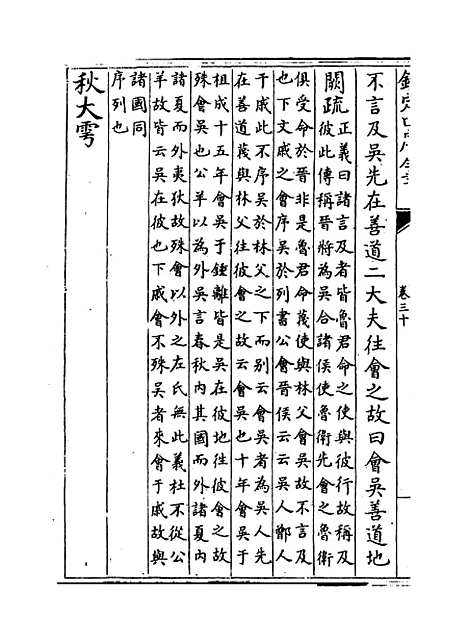 欽定四庫全書
卷三十
不言及吳先在善道二大夫往會之故曰會吳善道地
闕疏正義曰諸言及者皆魯君命之使與彼行故稱及
彼此傳稱晉將為吳合諸侯使魯衛先會之魯衛
俱受命於晉非是魯君命蔑使與林父會吳故不言及
也下文戚之會序吳於列書公會晉侯云云吳人鄫人
于戚此不序吳於林父之下而别云會吳者為吳人先
在善道蔑與林父往彼會之故云會吳也十年會吳于
柤成十五年會吳于鍾離皆是吳在彼地往彼會之故
殊會吳也公羊以為外吳言春秋内其國而外諸夏内
諸夏而外夷狄故殊會以外之左氏無此義杜不從公
羊故皆云吳在彼也下戚會不殊吳者來會于戚故與
諸國同
序列也
秋大雩